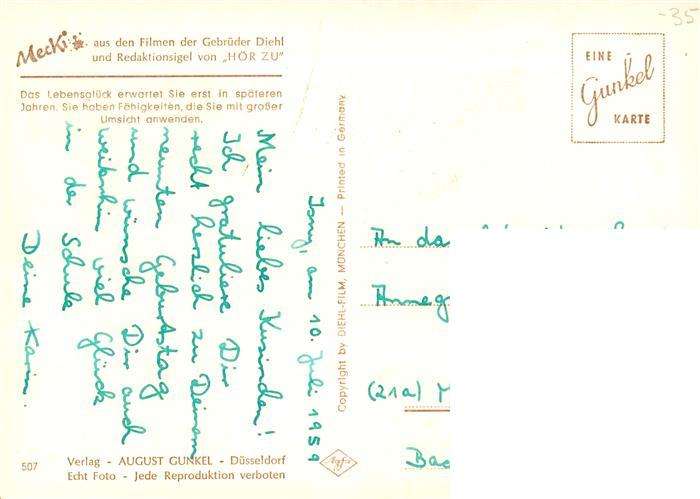 -35
Mecki
aus den Filmen der Gebrüder Diehl
und Redaktionsigel von „HÖR ZU"
Das Lebensglück erwartet Sie erst in späteren
Jahren. Sie haben Fähigkeiten, die Sie mit großer
Umsicht anwenden.
EINE
Gunkel
KARTE
Isny, am 10. Juli 1959
Mein liebes Kusinchen!
Ich gratuliere Dir
recht herzlich zu Deinem
neunten Geburtstag
und wünsche Dir auch
weiterhin viel Glück
in der Schule
Deine Karin.
Copyright by DIEHL-FILM, MÜNCHEN — Printed in Germany
An da
Anneg
(21a) M
Bad
507
Verlag - AUGUST GUNKEL - Düsseldorf
Echt Foto - Jede Reproduktion verboten